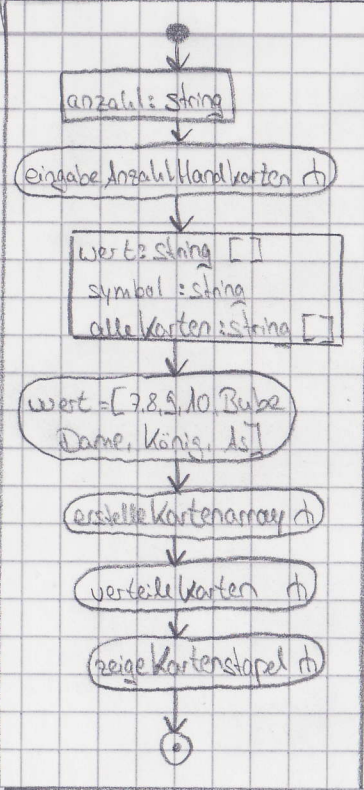 anzahl: string
eingabeAnzahlHandkarten
wert: string []
symbol : string
alleKarten : string []
wert = [7,8,9,10, Bube
Dame, König, As]
erstelleKartenarray
verteileKarten
zeigeKartenstapel